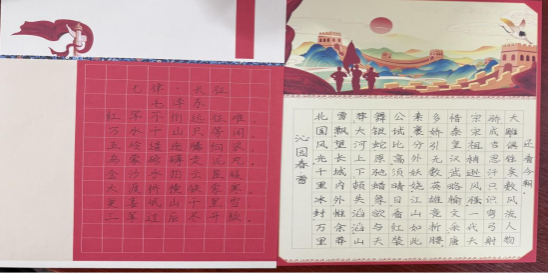 七律·长征
毛泽东
红军不怕远征难，
万水千山只等闲。
五岭逶迤腾细浪，
乌蒙磅礴走泥丸。
金沙水拍云崖暖，
大渡桥横铁索寒。
更喜岷山千里雪，
三军过后尽开颜。
沁园春雪
北国风光千里冰封万里
雪飘望长城内外惟余莽
莽大河上下顿失滔滔山
舞银蛇原驰蜡象欲与天
公试比高须晴日看红装
素裹分外妖娆江山如此
多娇引无数英雄竞折腰
惜秦皇汉武略输文采唐
宗宋祖稍逊风骚一代天
骄成吉思汗只识弯弓射
大雕俱往矣数风流人物
还看今朝